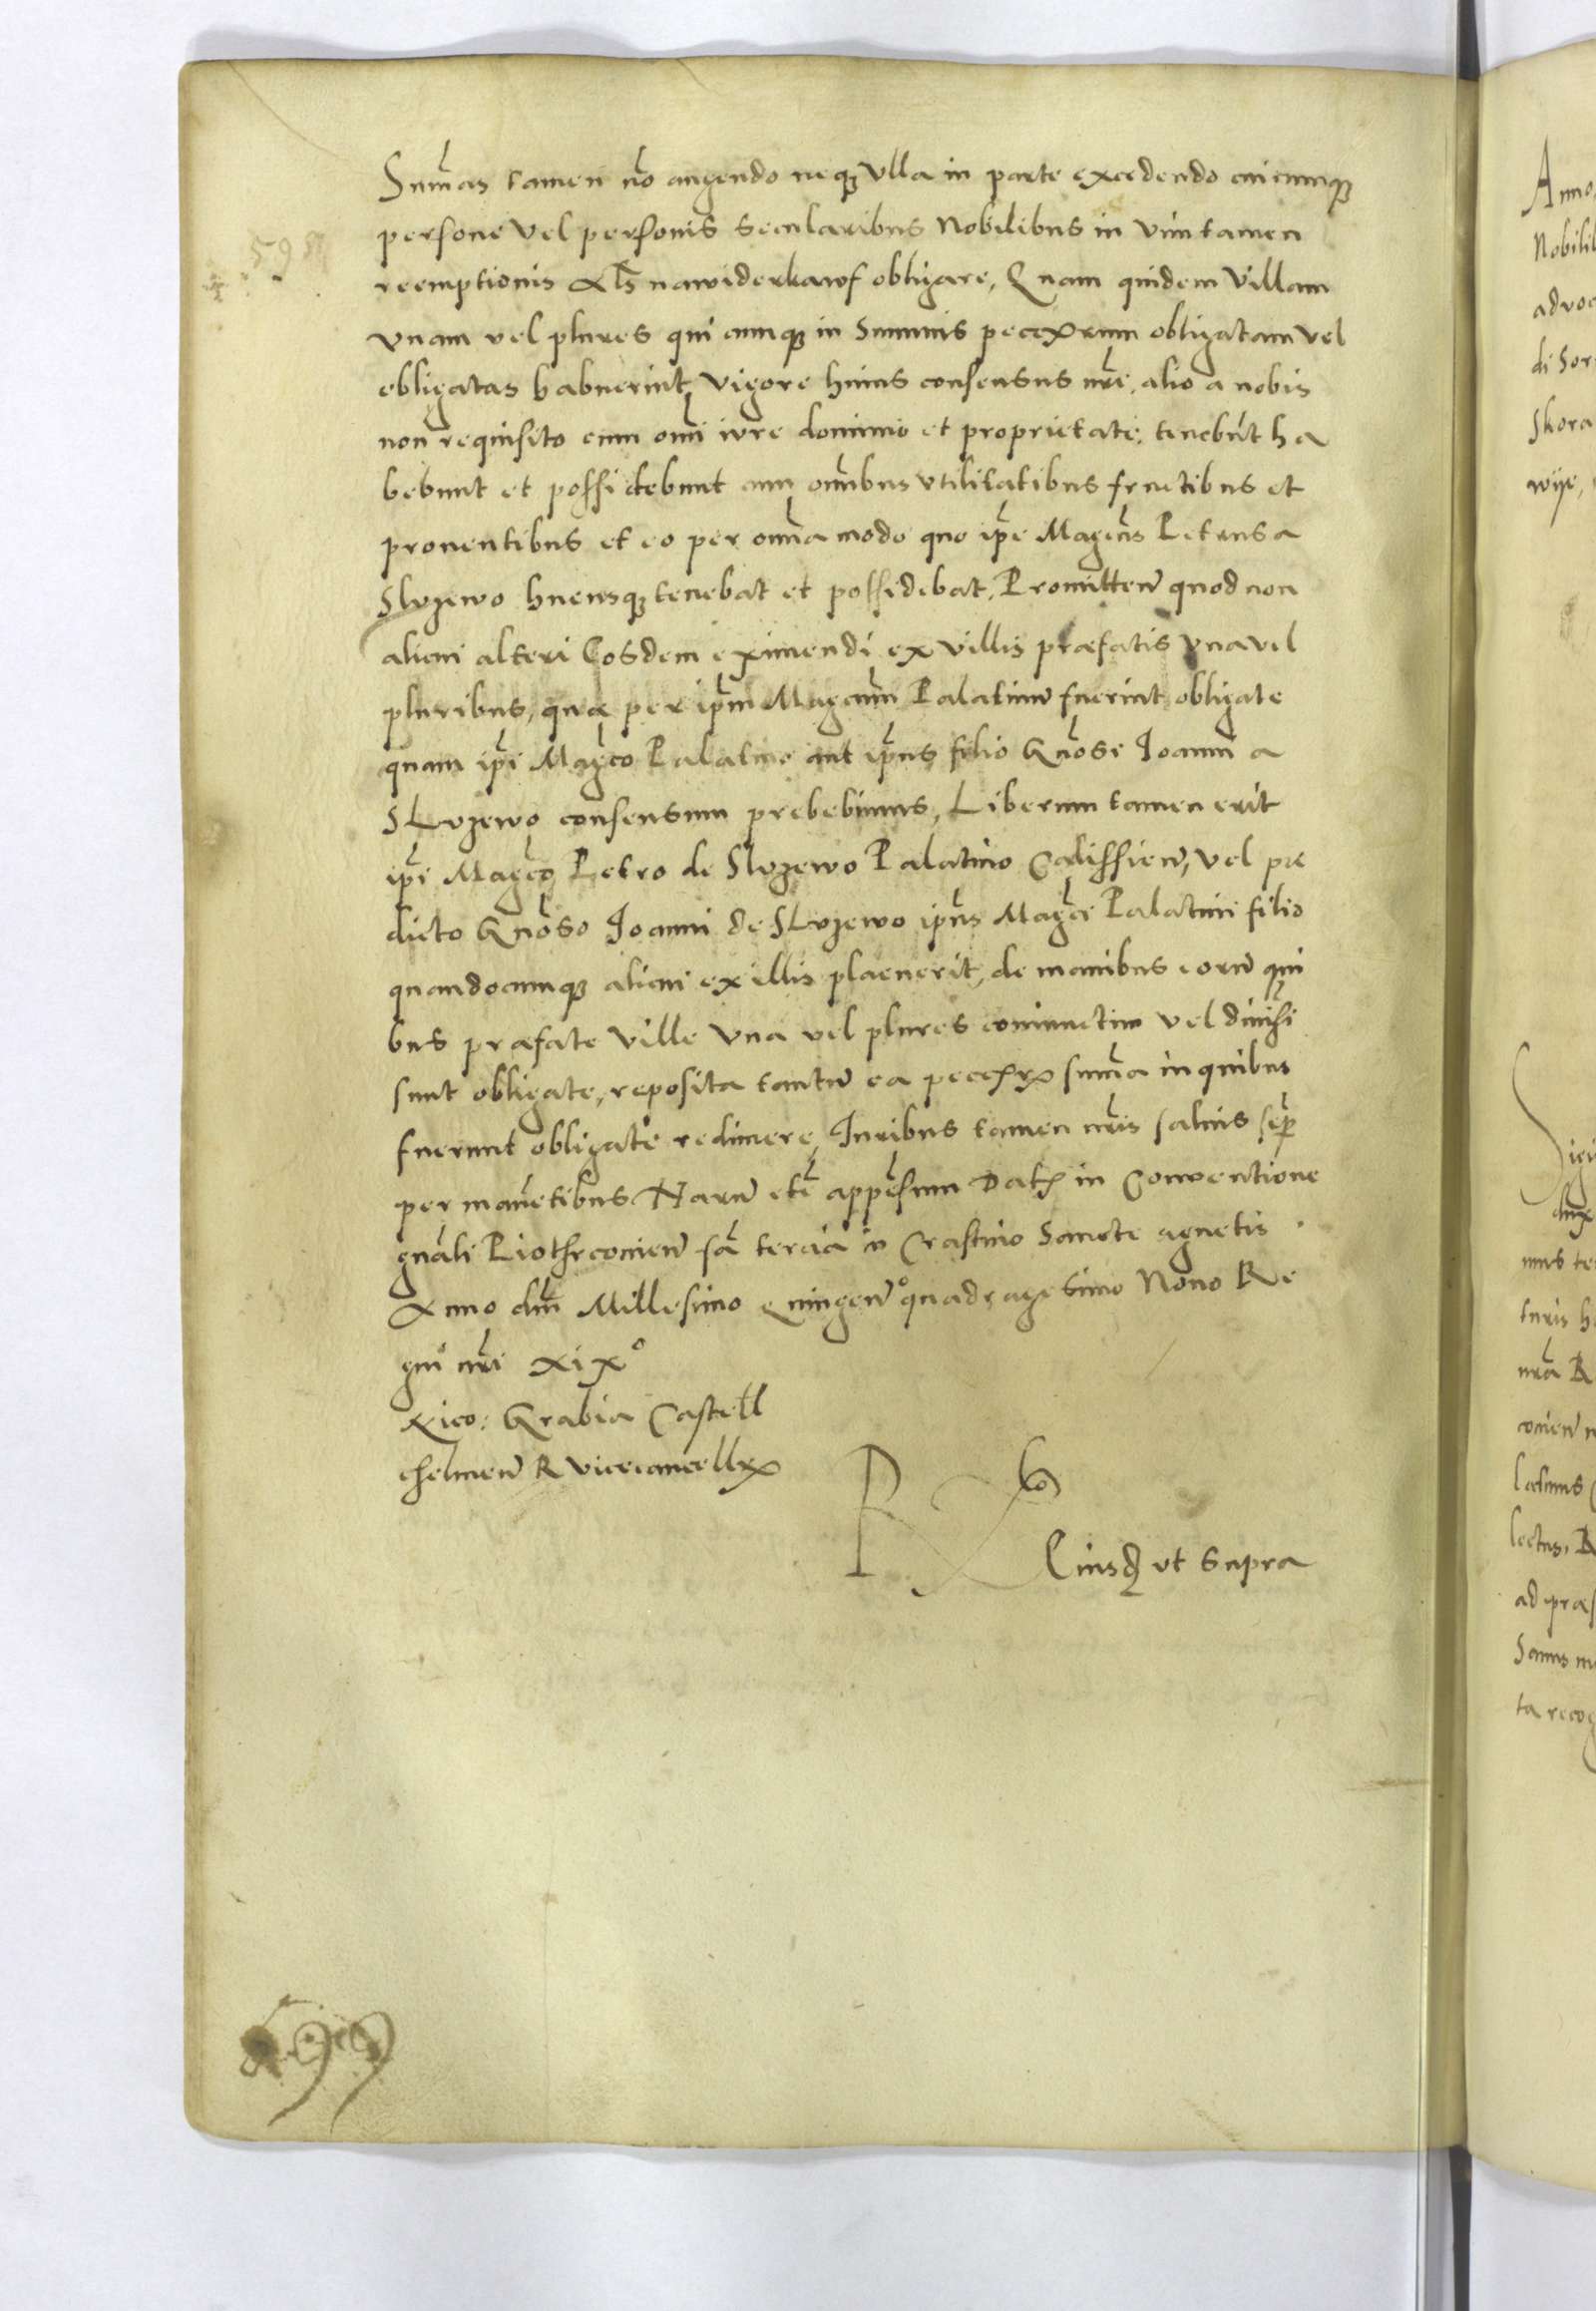 Sum̃as tamen nõ augendo neqꝫ Vlla in parte excedendo cuicumqꝫ
persone Vel personis secularibus Nobilibus in vim tamen
reemptionis als nawiderkawf obligare, Quam quidem Villam
vnam vel plures qui cumqꝫ in Summis peccꝝum obligatam vel
obligatas habuerint, Vigore huius consensus nr̃i, alio a nobis
non requisito cum om̃i iure dominio et proprietate, tenebũt ha
bebunt et possidebunt cum om̃ibus vtilitatibus fructibus et
prouentibus et eo per om̃ia modo quo ip̃e Magcus Petrus a
Sluzewo hucusqꝫ tenebat et possidebat, Promitteñ quod non
alicui alteri Eosdem eximendi ex villis præfatis vna vel
pluribus, quæ per ip̃m Magcum Palatinũ fuerint obligate
quam ip̃i Magco Palatino aut ip̃ius filio Gñoso Joanni a
SLuzewo consensum prebebimus, Liberum tamen erit
ip̃i Magco Petro de Sluzewo Palatino Calissieñ, vel præ
dicto Gñoso Joanni de SLuzewo ip̃ius Magci Palatini filio
quandocumqꝫ alicui ex illis placuerit, de manibus eorũ qui
bus præfate Ville vna vel plures coniunctim vel diuisi
sunt obligate, reposita tantũ ea peccꝝ sum̃a in quibus
fuerunt obligate redimere, Juribus tamen nr̃is saluis sẽp
permanẽtibus Harũ etc̃ appẽsum Datꝫ in Conventione
gñali Piothrcovieñ fã tercia in Crastino Sancte agnetis
Anno dñi Millesimo Quingeño quadragesimo Nono Re
gni nr̃i xixº
Nico: Grabia Castell
chelmeñ R vicecancellꝝ
R
Eiusdꝫ vt supra
599